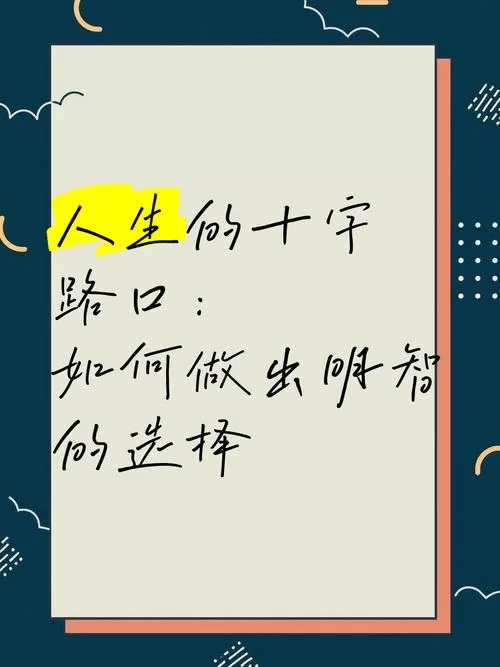 人生的十字
路口：
如何做出明智
的选择